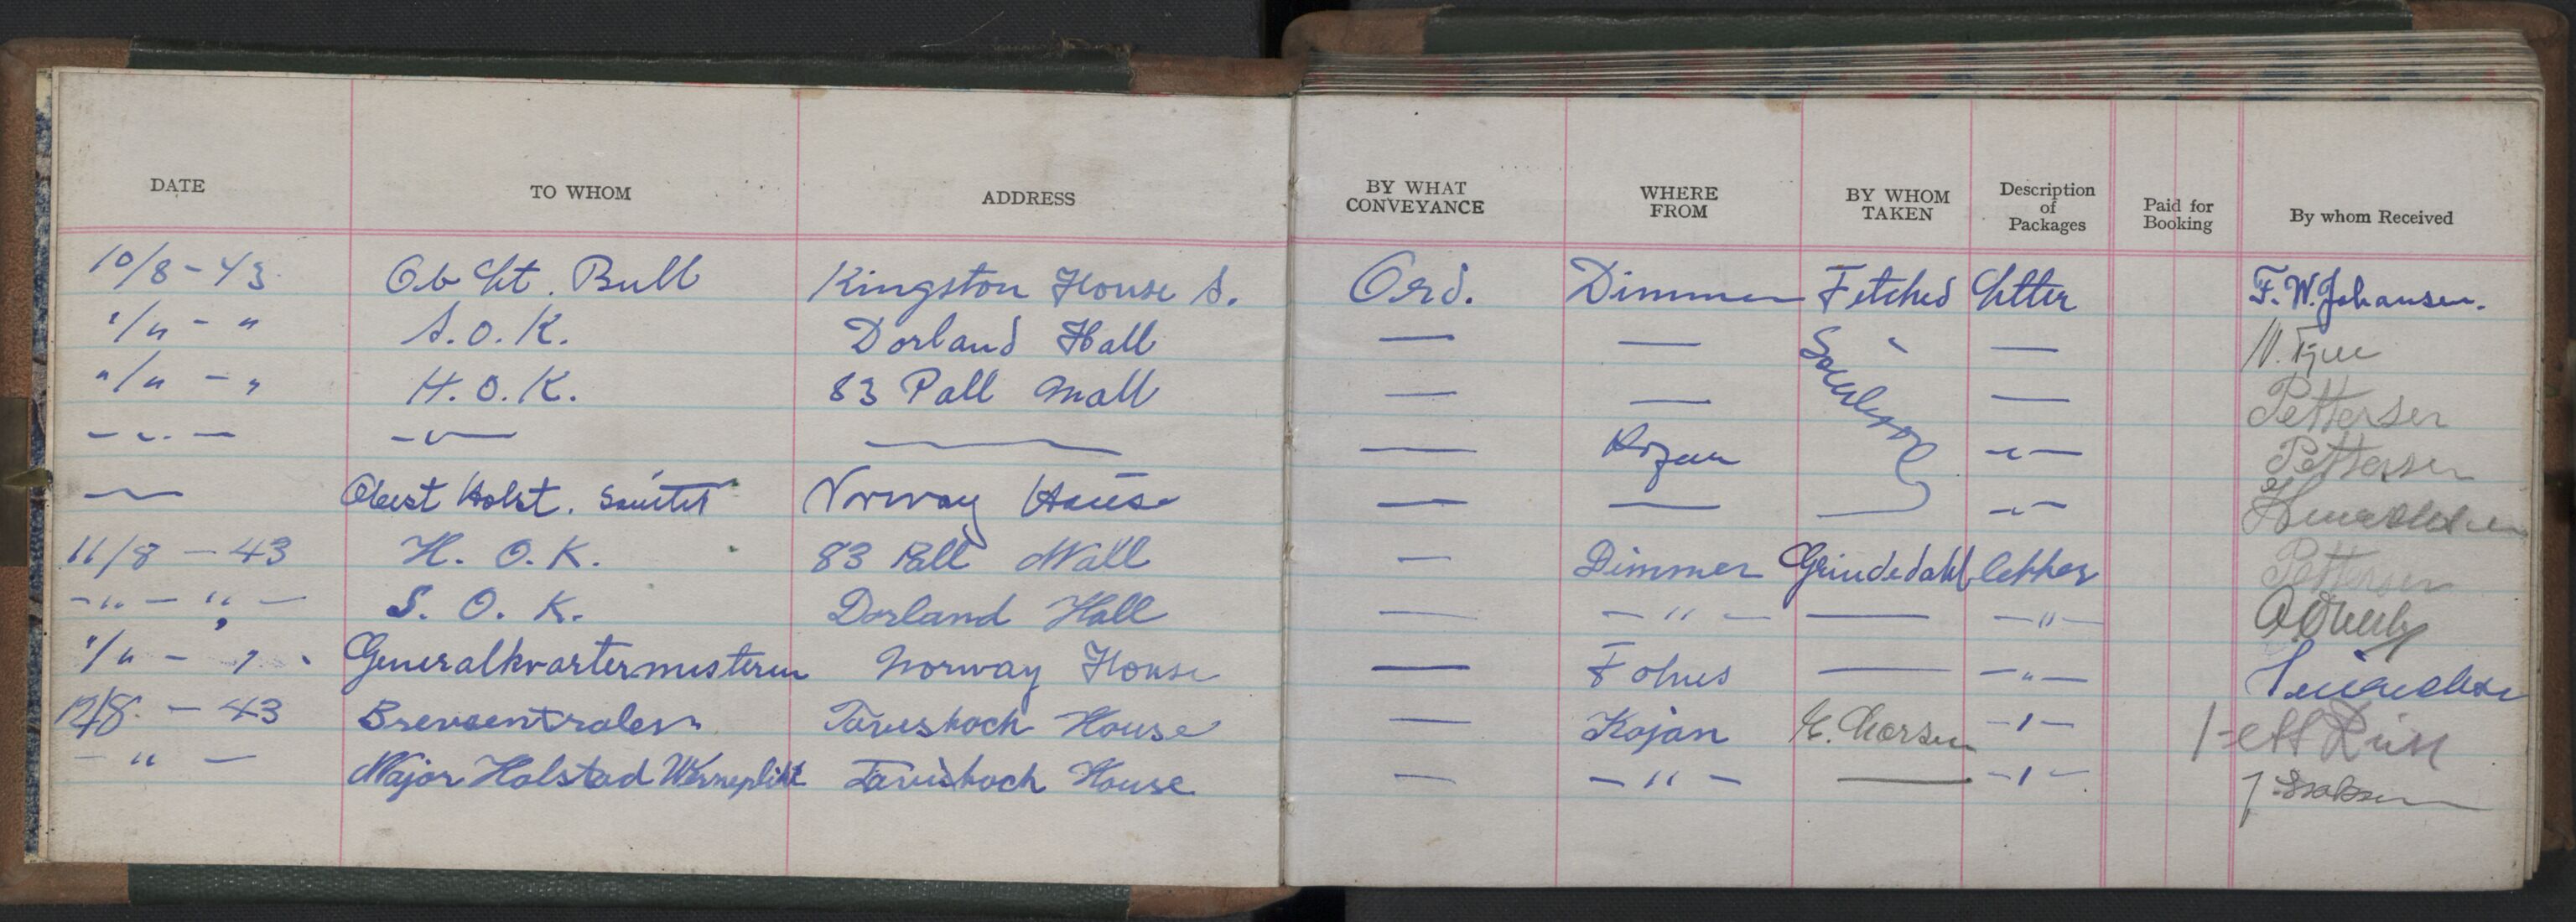 DATE TO WHOM ADDRESS BY WHAT CONVEYANCE WHERE FROM BY WHOM TAKEN Description of Packages Paid for Booking By whom Received
10/8 - 43 Ob Lt. Bull Kingston House S. Ord. Dimmer Fetched Letter F. W. Johansen.
"/" - " S.O.K. Dorland Hall — — — —
"/" - " H.O.K. 83 Pall Mall — — — Pettersen
- " - - " - — — - " - Pettersen
— Oberst Holst. Norway House — — — - " -
11/8 - 43 H. O. K. 83 Pall Mall — Dimmer Grindedahl letter Pettersen
- " - " - S. O. K. Dorland Hall — - " - — - " -
"/" - " Generalkvartermesteren Norway House — Fohus — - " -
12/8 - 43 Brevsentralen Tavistoch House — Kojan - " -
- " - Major Halstad Tavistoch House — - " - — - " -